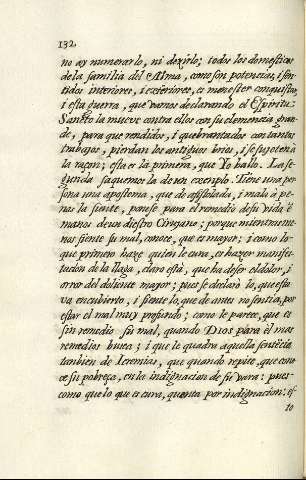 132
no ay numerarlo, ni dezirlo; todos los domesticos
de la familia del Alma, como son potencias, i sen-
tidos interiores, i exteriores, es menester conquistar,
i esta guerra, que vamos declarando el Espiritu
Sancto la mueve contra ellos con su clemencia gran-
de, para que rendidos, i quebrantados con tantos
trabajos, pierdan los antiguos brios, i se sujeten à
la razon; esta es la primera, que Yo hallo. La se-
gunda saquemosla de un exemplo. Tiene una per-
sona una apostema, que dò afistolada, i mala à pe-
nas la siente, ponese para el remedio de su vida è
manos de un diestro Cirujano; porque mientras me-
nos siente su mal, conoce, que es mayor; i como lo
que primero haze quien le cura, es hazer manifes-
tacion de la llaga, claro està, que ha de ser el dolor, i
orror del doliente mayor; pues se declarò lo, que esta-
va encubierto, i siente lo, que de antes no sentia, por
estar el mal muy profundo; como le parece, que es
sin remedio su mal, quando Dios para èl mas
remedios busca; i que le quadra aquella sentècia
tanbien de Ieremias, que quando repite, que cono-
ce su pobreça, en la indignacion de su vara: pues
como que lo que es cura, quenta por indignacion; es-
to